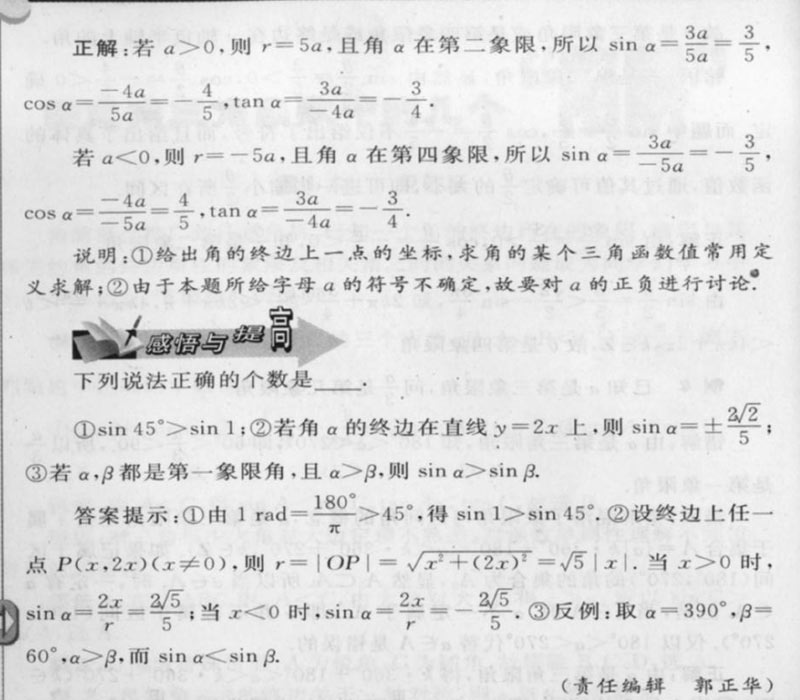 正解:若 a>0,则 r=5a,且角 α 在第二象限,所以 sin α=3a/5a=3/5,
cos α=-4a/5a=-4/5,tan α=3a/-4a=-3/4.
若 a<0,则 r=-5a,且角 α 在第四象限,所以 sin α=3a/-5a=-3/5,
cos α=-4a/-5a=4/5,tan α=3a/-4a=-3/4.
说明:①给出角的终边上一点的坐标,求角的某个三角函数值常用定
义求解;②由于本题所给字母 a 的符号不确定,故要对 a 的正负进行讨论.
感悟与提高
下列说法正确的个数是
①sin 45°>sin 1;②若角 α 的终边在直线 y=2x 上,则 sin α=±2√2/5;
③若 α,β 都是第一象限角,且 α>β,则 sin α>sin β.
答案提示:①由 1 rad=180°/π>45°,得 sin 1>sin 45°.②设终边上任一
点 P(x,2x)(x≠0),则 r=|OP|=√x²+(2x)²=√5|x|.当 x>0 时,
sin α=2x/r=2√5/5;当 x<0 时,sin α=2x/r=-2√5/5.③反例:取 α=390°,β=
60°,α>β,而 sin α<sin β.
(责任编辑 郭正华)